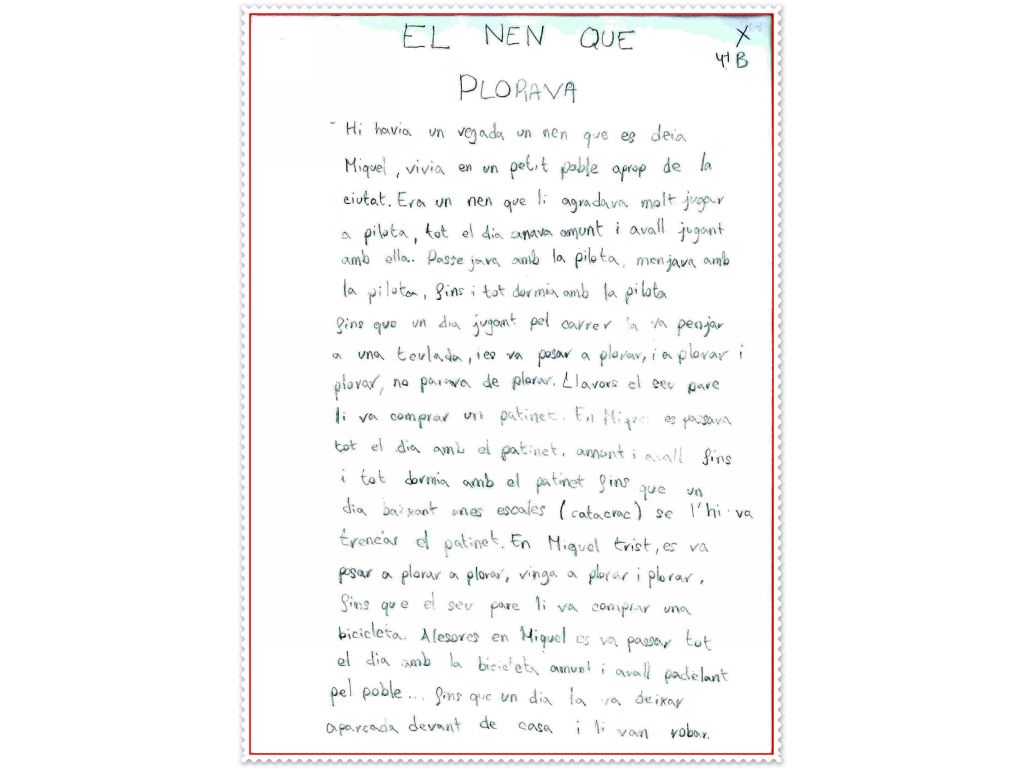 EL NEN QUE
X
4t B
PLORAVA
- Hi havia un vegada un nen que es deia
Miquel, vivia en un petit poble aprop de la
ciutat. Era un nen que li agradava molt jugar
a pilota, tot el dia anava amunt i avall jugant
amb ella. Passejava amb la pilota, menjava amb
la pilota, fins i tot dormia amb la pilota
fins que un dia jugant pel carrer la va penjar
a una teulada, i es va posar a plorar, i a plorar i
plorar, no parava de plorar. Llavors el seu pare
li va comprar un patinet. En Miquel es passava
tot el dia amb el patinet, amunt i avall fins
i tot dormia amb el patinet fins que un
dia baixant unes escales (catacrac) se l'hi va
trencar el patinet. En Miquel trist, es va
posar a plorar a plorar, vinga a plorar i plorar,
fins que el seu pare li va comprar una
bicicleta. Alesores en Miquel es va passar tot
el dia amb la bicicleta amunt i avall padelant
pel poble... fins que un dia la va deixar
aparcada devant de casa i li van robar.